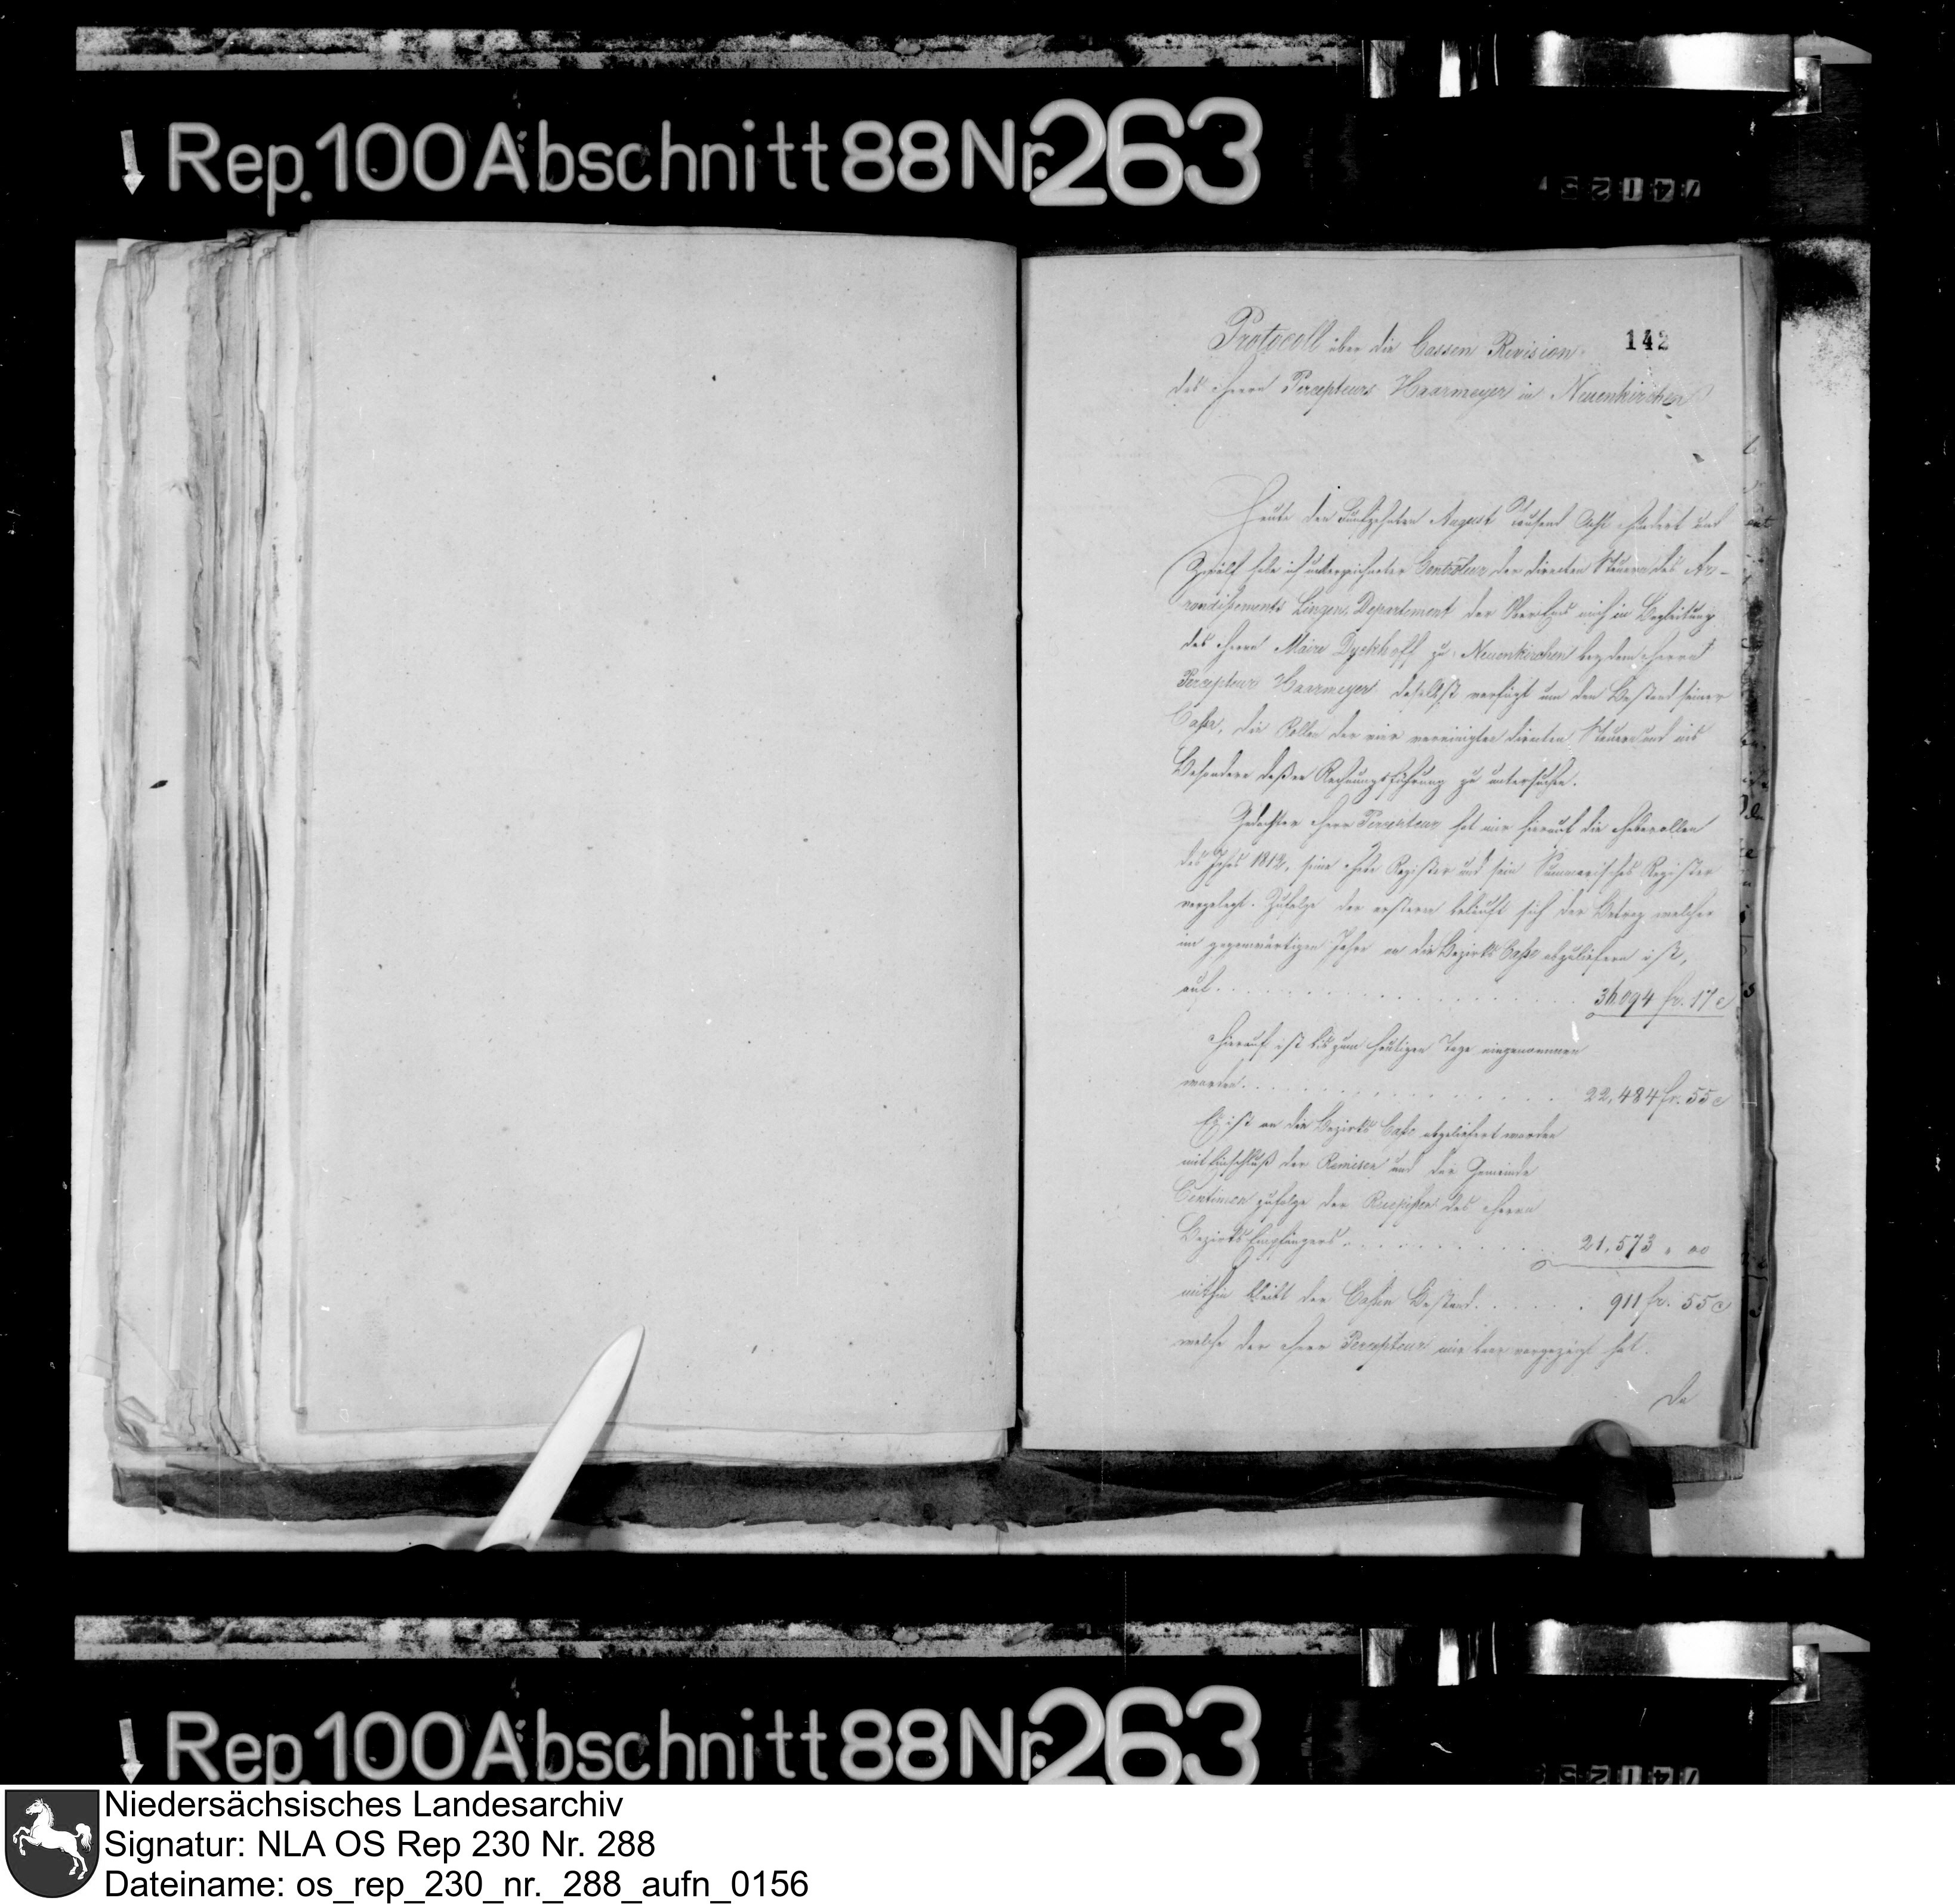 Rep. 100 Abschnitt 88 Nr. 263
142
Protocoll über die Cassen Revision
des Herrn Percepteurs Haarmeyer in Neuenkirchen
Heute den Funfzehnten August Tausend Acht Hundert und
Zwölf habe ich unterzeichneter Controleur der directen Steuern des Ar-
rondissements Lingen, Departement der Ober Ems mich in Begleitung
des Herrn Maire Dyckhoff zu Neuenkirchen bey dem Herrn
Percepteur Haarmeyer daselbst verfügt um den Bestand seiner
Casse, die Rollen der vier vereinigten directen Steuern und ins
Besondere dessen Rechnungsführung zu untersuchen.
Gedachter Herr Percepteur hat mir hierauf die Heberollen
des Jahrs 1812, seine Hebe Register und sein Summarisches Register
vorgelegt. Zufolge der erstern beläuft sich der Betrag welcher
im gegenwärtigen Jahre an die Bezirks Casse abzuliefern ist,
auf . . . . . . . . . . 36,094 fr. 17 c
Hierauf ist bis zum heutigen Tage eingenommen
worden . . . . . . . . . . 22,484 fr. 55 c
Es ist an die Bezirks Casse abgeliefert worden
mit Einschluß der Remisen und der Gemeinde
Centimen zufolge der Recepissen des Herrn
Bezirks Empfängers . . . . . . . . 21,573 " 00
mithin bleibt der Cassen Bestand . . . . . . 911 fr. 55 c
welche der Herr Percepteur mir baar vorgezeigt hat.
Da
Rep. 100 Abschnitt 88 Nr. 263
Niedersächsisches Landesarchiv
Signatur: NLA OS Rep 230 Nr. 288
Dateiname: os_rep_230_nr._288_aufn_0156